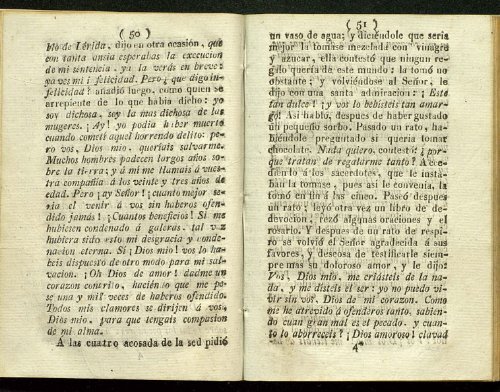 ( 50 )
blo de Lérida, dijo en otra ocasión, que
con tanta ansia esperabas la execucion
de mi sentencia, ya la verás en breve:
ya ves mi felicidad. Pero ¿ que digo in-
felicidad ? añadió luego, como quien se
arrepiente de lo que habia dicho: yo
soy dichosa, soy la mas dichosa de las
mugeres. ¡ Ay! yo podia haber muerto
cuando cometí aquel horrendo delito: pe-
ro vos, Dios mio, queriais salvarme.
Muchos hombres padecen largos años so-
bre la tierra; y á mi me llamais á vues-
tra compañía á los veinte y tres años de
edad. Pero ¡ay Señor! ¡cuanto mejor se-
ria el venir á vos sin haberos ofendi-
do jamás! ¡Cuántos beneficios! Si me
hubiesen condenado á galeras, tal vez
hubiera sido esto mi desgracia y conde-
nacion eterna. Si ¡Dios mio! vos lo ha-
beis dispuesto de otro modo para mi sal-
vacion. ¡Oh Dios de amor! dadme un
corazon contrito, haciendo que me pe-
se una y mil veces de haberos ofendido.
Todos mis clamores se dirijen á vos,
Dios mio, para que tengais compasion
de mi alma.
A las cuatro acosada de la sed pidió
( 51 )
un vaso de agua; y diciéndole que seria
mejor la tomase mezclada con vinagre
y azucar, ella contestó que ningun re-
galo queria de este mundo: la tomó no
obstante; y volviéndose al Señor, le
dijo con una santa admiracion: ¡ Esta
tan dulce! ¡y vos lo bebisteis tan amar-
go! Asi habló, despues de haber gustado
un pequeño sorbo. Pasado un rato, ha-
biéndole preguntado si queria tomar
chocolate. Nada quiero, contestó ¿ por-
que tratan de regalarme tanto? Acce-
diendo á los sacerdotes, que le insta-
ban la tomase, pues asi le convenia, la
tomó en fin á las cinco. Paseó despues
un rato; leyó otra vez un libro de de-
vocion, rezó algunas oraciones y el
rosario. Y despues de un rato de respi-
ro se volvió el Señor agradecida á sus
favores, y deseosa de testificarle siem-
pre mas su doloroso amor, y le dijo:
Vos, Dios mio, me criásteis de la na-
da, y me disteis el ser: yo no puedo vi-
vir sin vos, Dios de mi corazon. Como
me he atrevido á ofenderos tanto, sabien-
do cuan gran mal es el pecado, y cuan-
to lo aborreceis? ¡Dios amoroso! clavad
4*